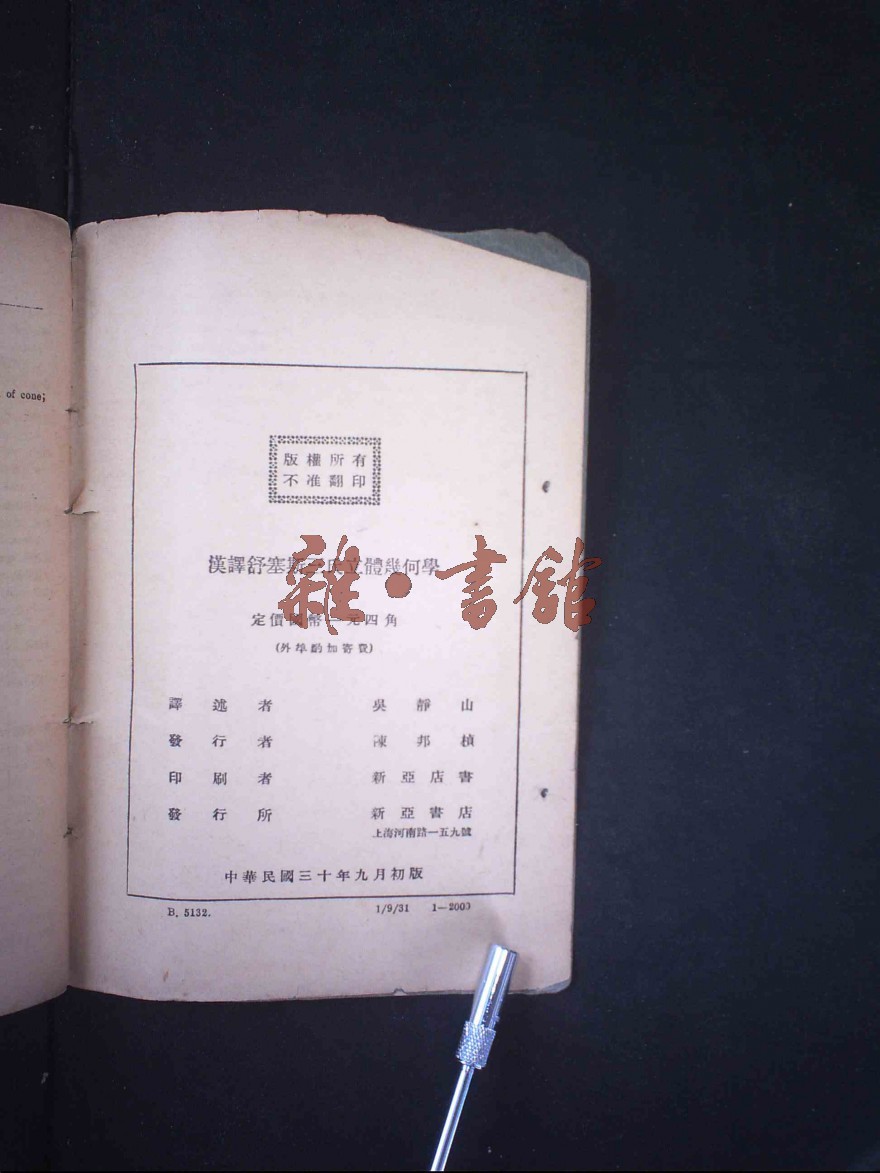 of cone;
版權所有
不准翻印
漢譯舒塞斯三氏立體幾何學
雜·書館
定價國幣一元四角
(外埠酌加寄費)
譯述者 吳靜山
發行者 陳邦楨
印刷者 新亞店書
發行所 新亞書店
上海河南路一五九號
中華民國三十年九月初版
B. 5132. 1/9/31 1—2000